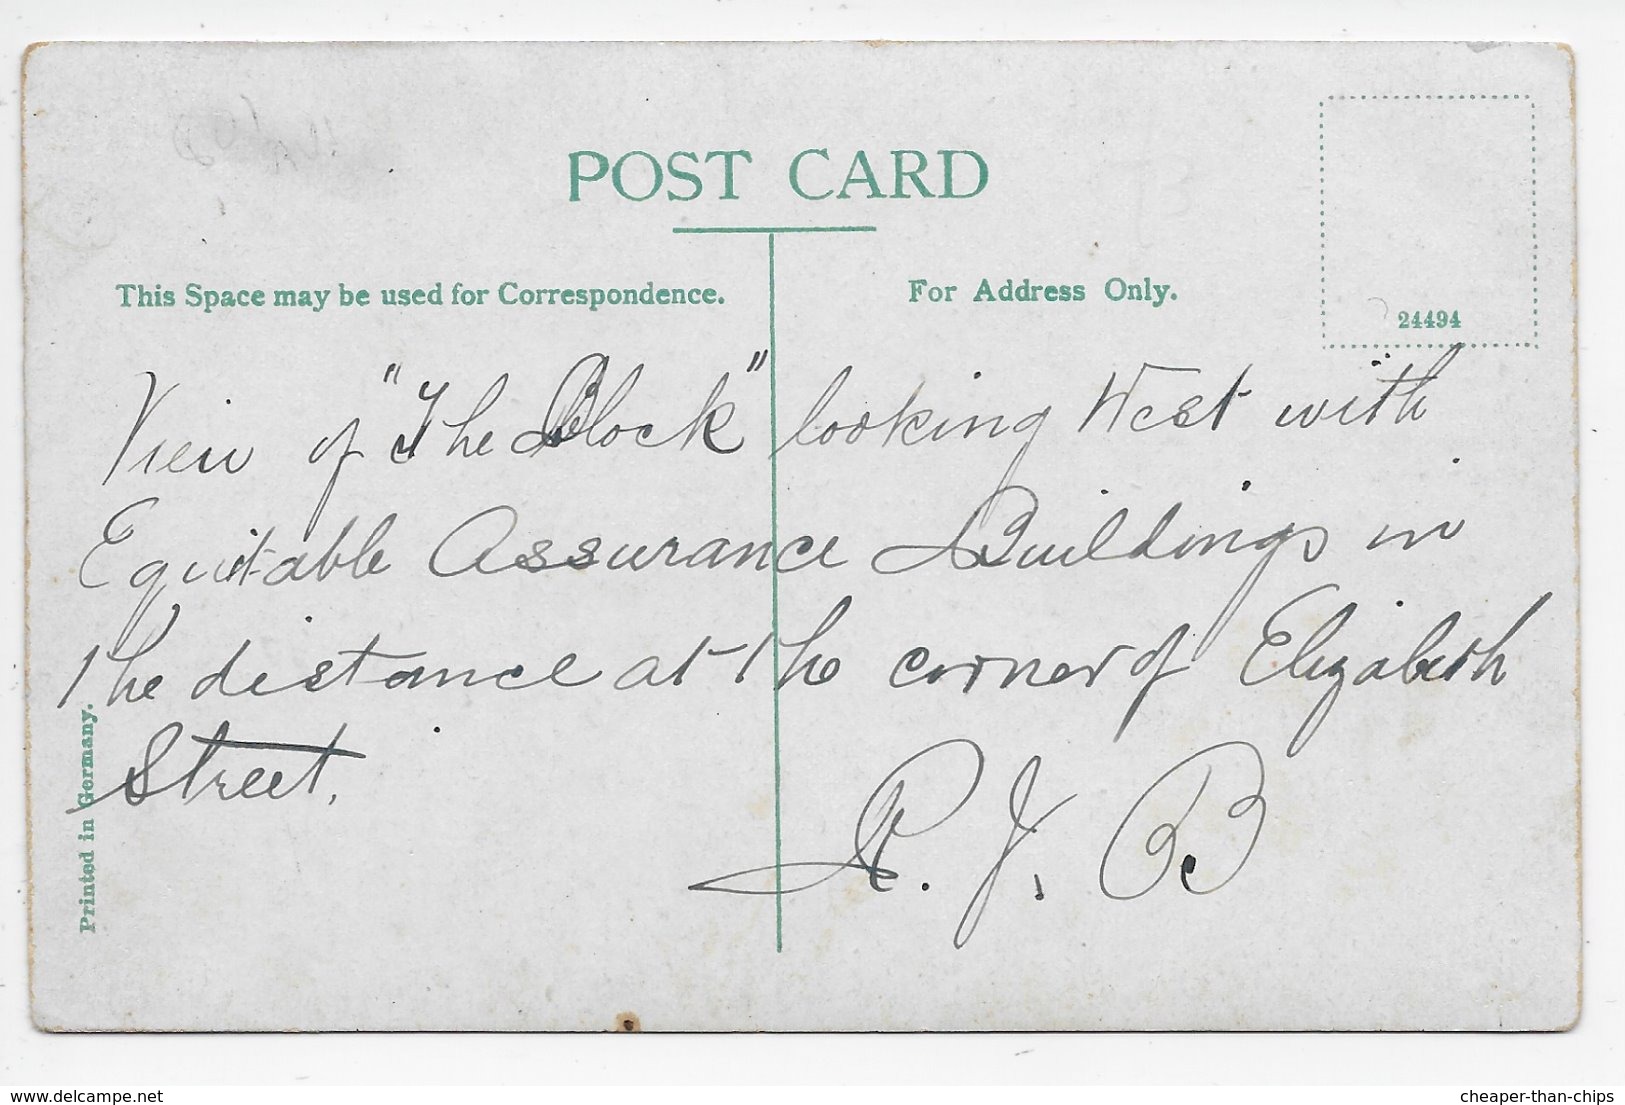 POST CARD
This Space may be used for Correspondence.
For Address Only.
24494
View of "The Block" looking West with
Equitable Assurance Buildings in
the distance at the corner of Elizabeth
Street.
R. J. B
Printed in Germany.
www.delcampe.net
cheaper-than-chips